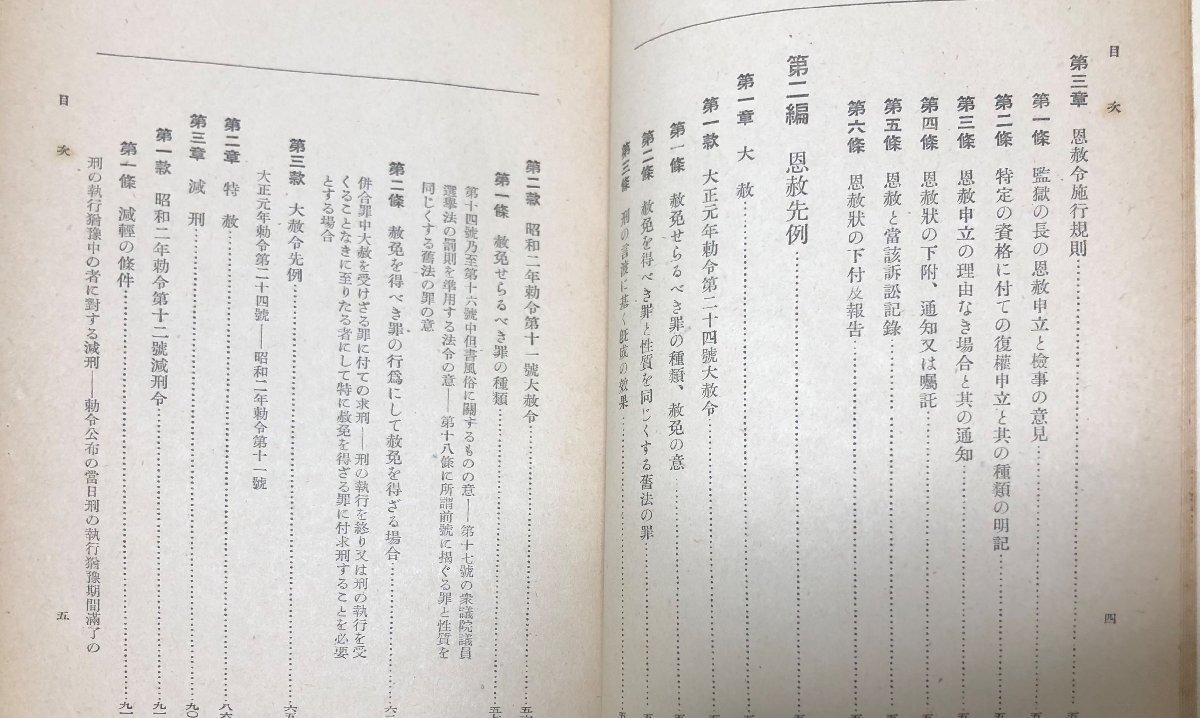 目次
四
第三章 恩赦令施行規則
第一條 監獄の長の恩赦申立と檢事の意見
第二條 特定の資格に付ての復權申立と其の種類の明記
第三條 恩赦申立の理由なき場合と其の通知
第四條 恩赦狀の下附、通知又は囑託
第五條 恩赦と當該訴訟記錄
第六條 恩赦狀の下付及報告
第二編 恩赦先例
第一章 大赦
第一款 大正元年勅令第二十四號大赦令
第一條 赦免せらるべき罪の種類、赦免の意
第二條 赦免を得べき罪と性質を同じくする舊法の罪
第三條 刑の言渡に基く旣成の效果
第二款 昭和二年勅令第十一號大赦令
第一條 赦免せらるべき罪の種類
第十四號乃至第十六號中但書風俗に關するものの意——第十七號の衆議院議員
選擧法の罰則を準用する法令の意——第十八條に所謂前號に揭ぐる罪と性質を
同じくする舊法の罪の意
第二條 赦免を得べき罪の行爲にして赦免を得ざる場合
併合罪中大赦を受けざる罪に付ての求刑——刑の執行を終り又は刑の執行を受
くることなきに至りたる者にして特に赦免を得ざる罪に付求刑することを必要
とする場合
第三款 大赦令先例
大正元年勅令第二十四號——昭和二年勅令第十一號
第二章 特赦
第三章 減刑
第一款 昭和二年勅令第十二號減刑令
第一條 減輕の條件
刑の執行猶豫中の者に對する減刑——勅令公布の當日刑の執行猶豫期間滿了の
目次
五